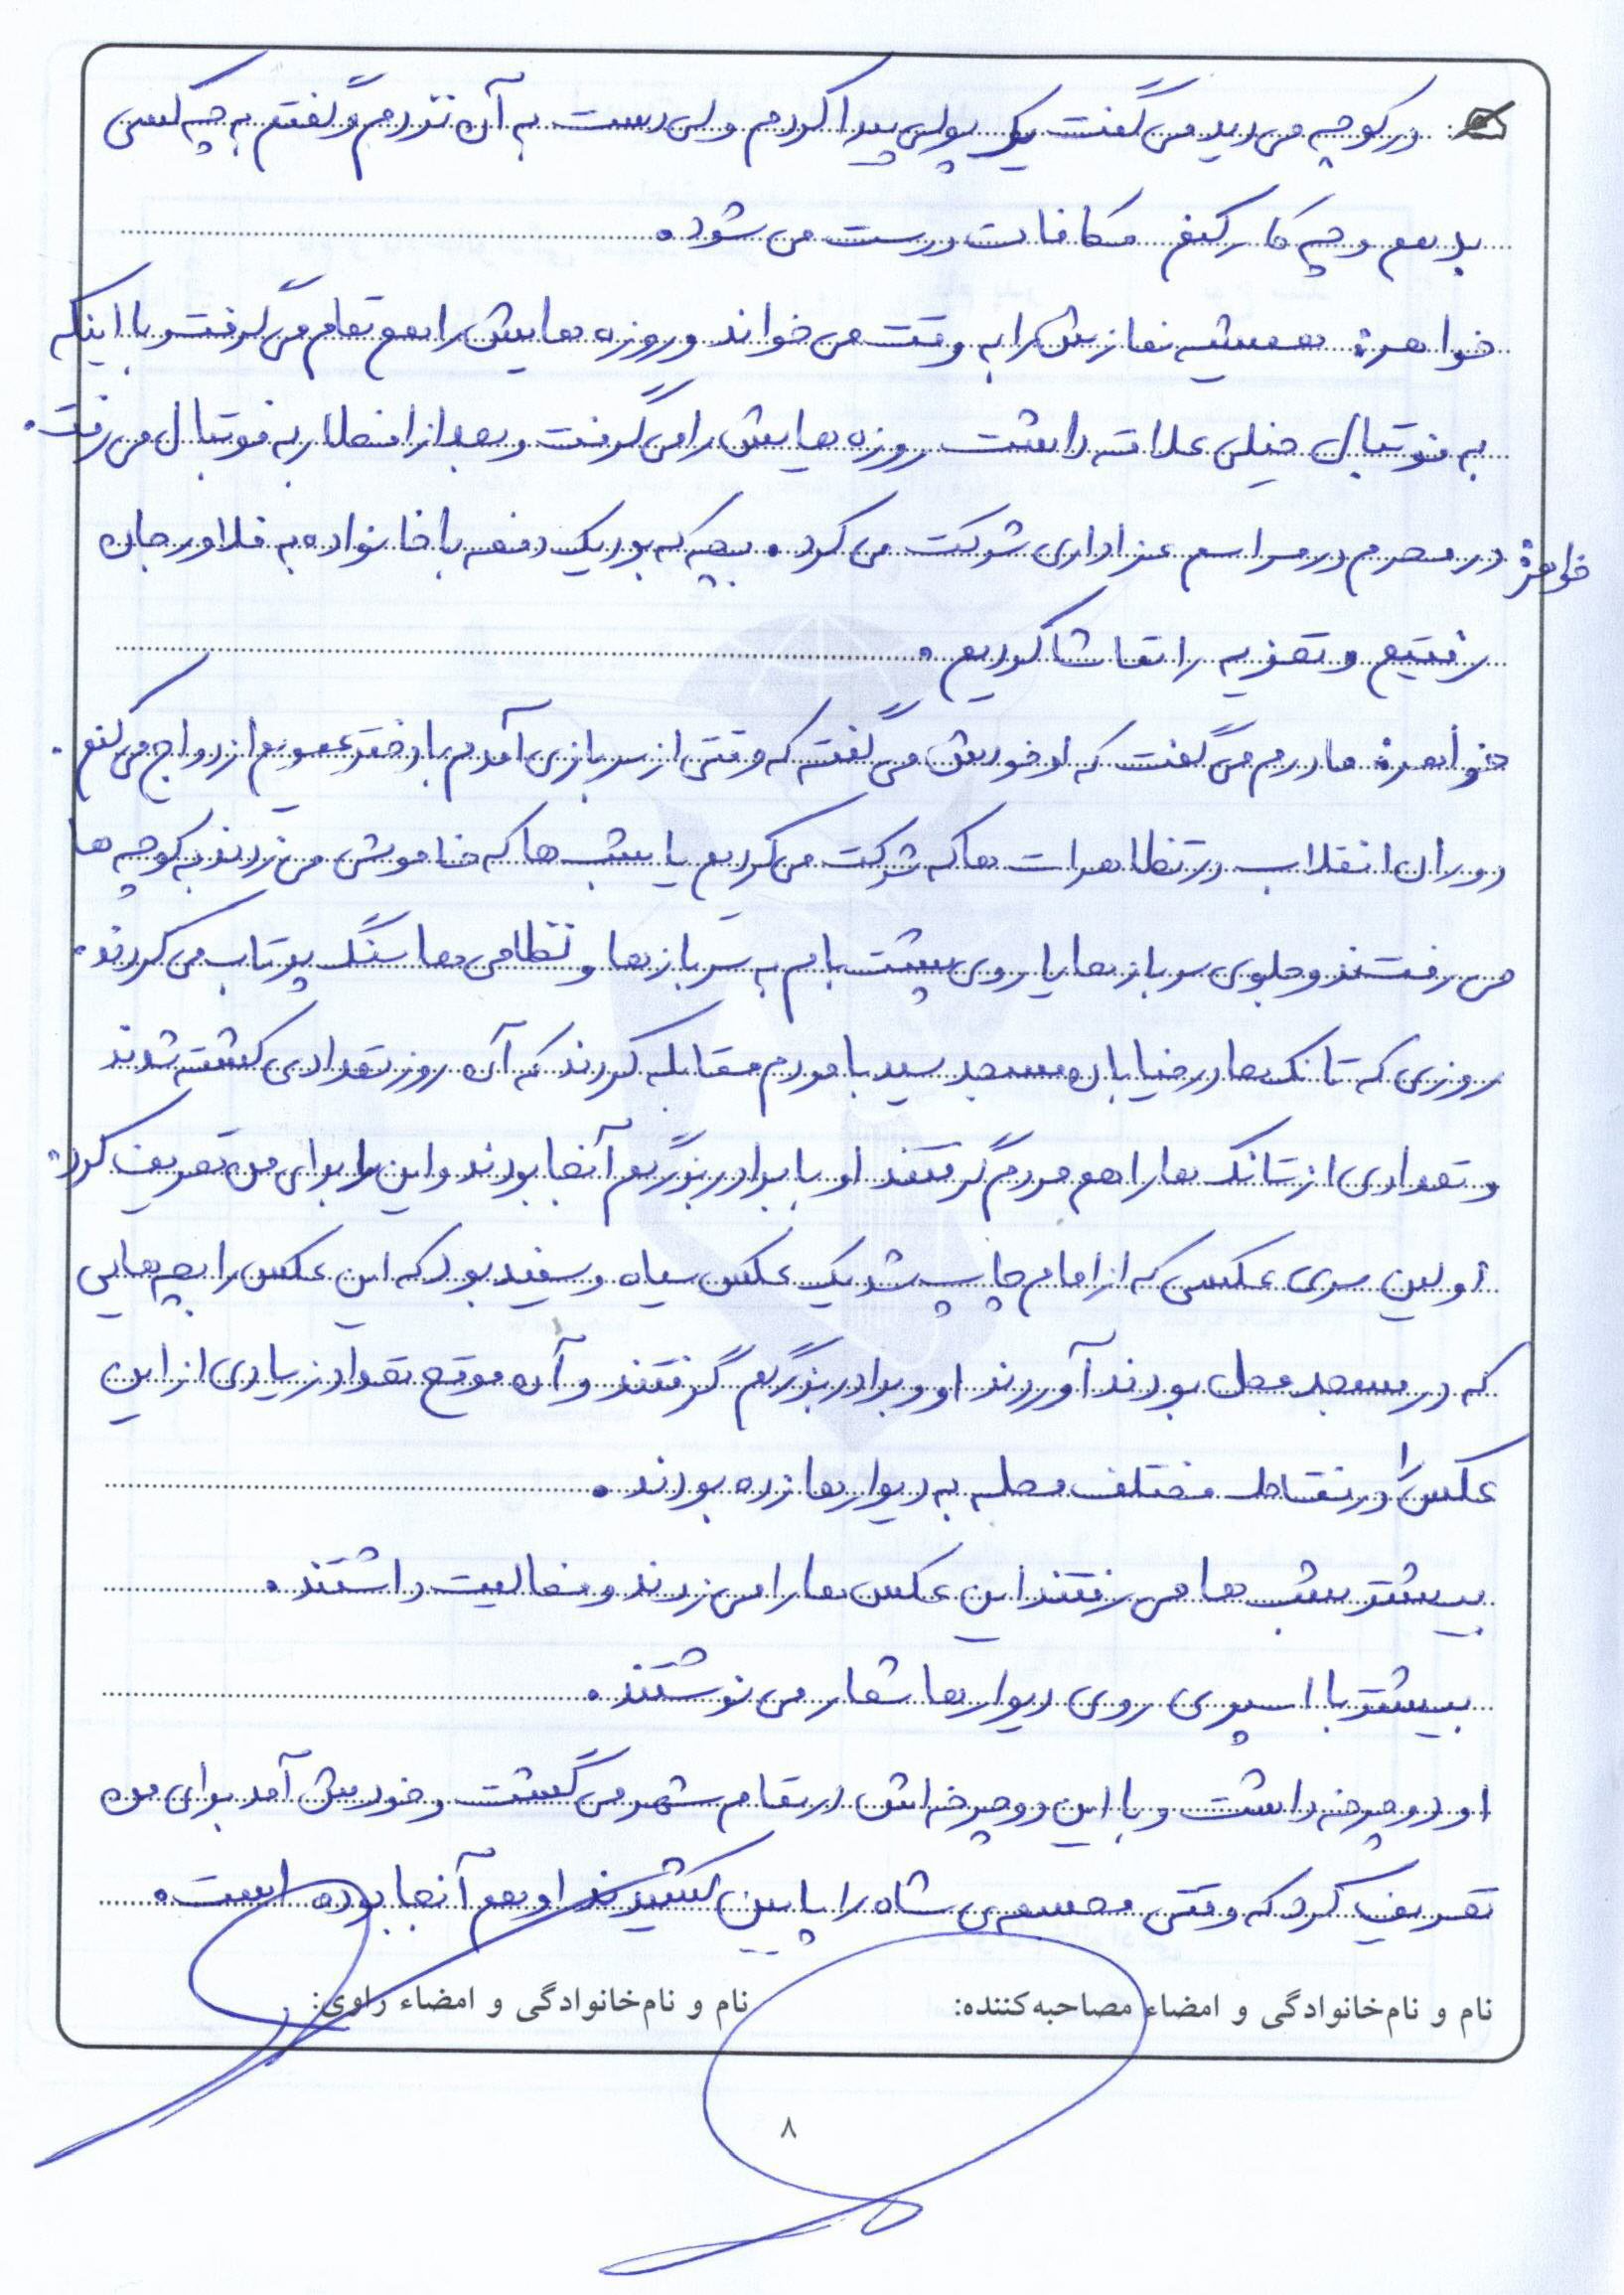 در کوچه می دید می گفت یک پولی پیدا کردم ولی دست به آن نزدم و گفتم به چه کسی
بدهم و چه کار کنم مکافات درست می شود.
خواهر: همیشه نمازش را به وقت می خواند و روزه هایش را هم تمام می گرفت و با اینکه
به فوتبال خیلی علاقه داشت روزه هایش را می گرفت و بعد از افطار به فوتبال می رفت.
خواهر: در محرم در مراسم عزاداری شرکت می کرد. بچه که بود یک دفعه با خانواده به فلاورجان
رفتیم و تعزیه را تماشا کردیم.
خواهر: مادرم می گفت که او خودش می گفته که وقتی از سربازی آمدم با دختر عمویم ازدواج می کنم.
دوران انقلاب در تظاهرات ها که شرکت می کردیم یا شب ها که خاموش می زدند به کوچه ها
می رفتند و جلوی سربازها یا روی پشت بام به سربازها و نظامی ها سنگ پرتاب می کردند.
روزی که تانک ها در خیابان مسجد سید با مردم مقابله کردند که آن روز تعدادی کشته شدند
و تعدادی از تانک ها را هم مردم گرفتند او با برادر بزرگم آنجا بودند و این را برای من تعریف کرد.
اولین سری عکسی که از امام چاپ شد یک عکس سیاه و سفید بود که این عکس را بچه هایی
که در مسجد محل بودند آوردند او و برادر بزرگم گرفتند و آن موقع تعداد زیادی از این
عکس را در نقاط مختلف محله به دیوارها زده بودند.
بیشتر شب ها می رفتند این عکس ها را می زدند و فعالیت داشتند.
بیشتر با اسپری روی دیوارها شعار می نوشتند.
او دوچرخه داشت و با این دوچرخه اش در تمام شهر می گشت و خودش آمد برای من
تعریف کرد که وقتی مجسمه ی شاه را پایین کشیدند او هم آنجا بوده است.
نام و نام‌خانوادگی و امضاء مصاحبه‌کننده: نام و نام‌خانوادگی و امضاء راوی:
۸